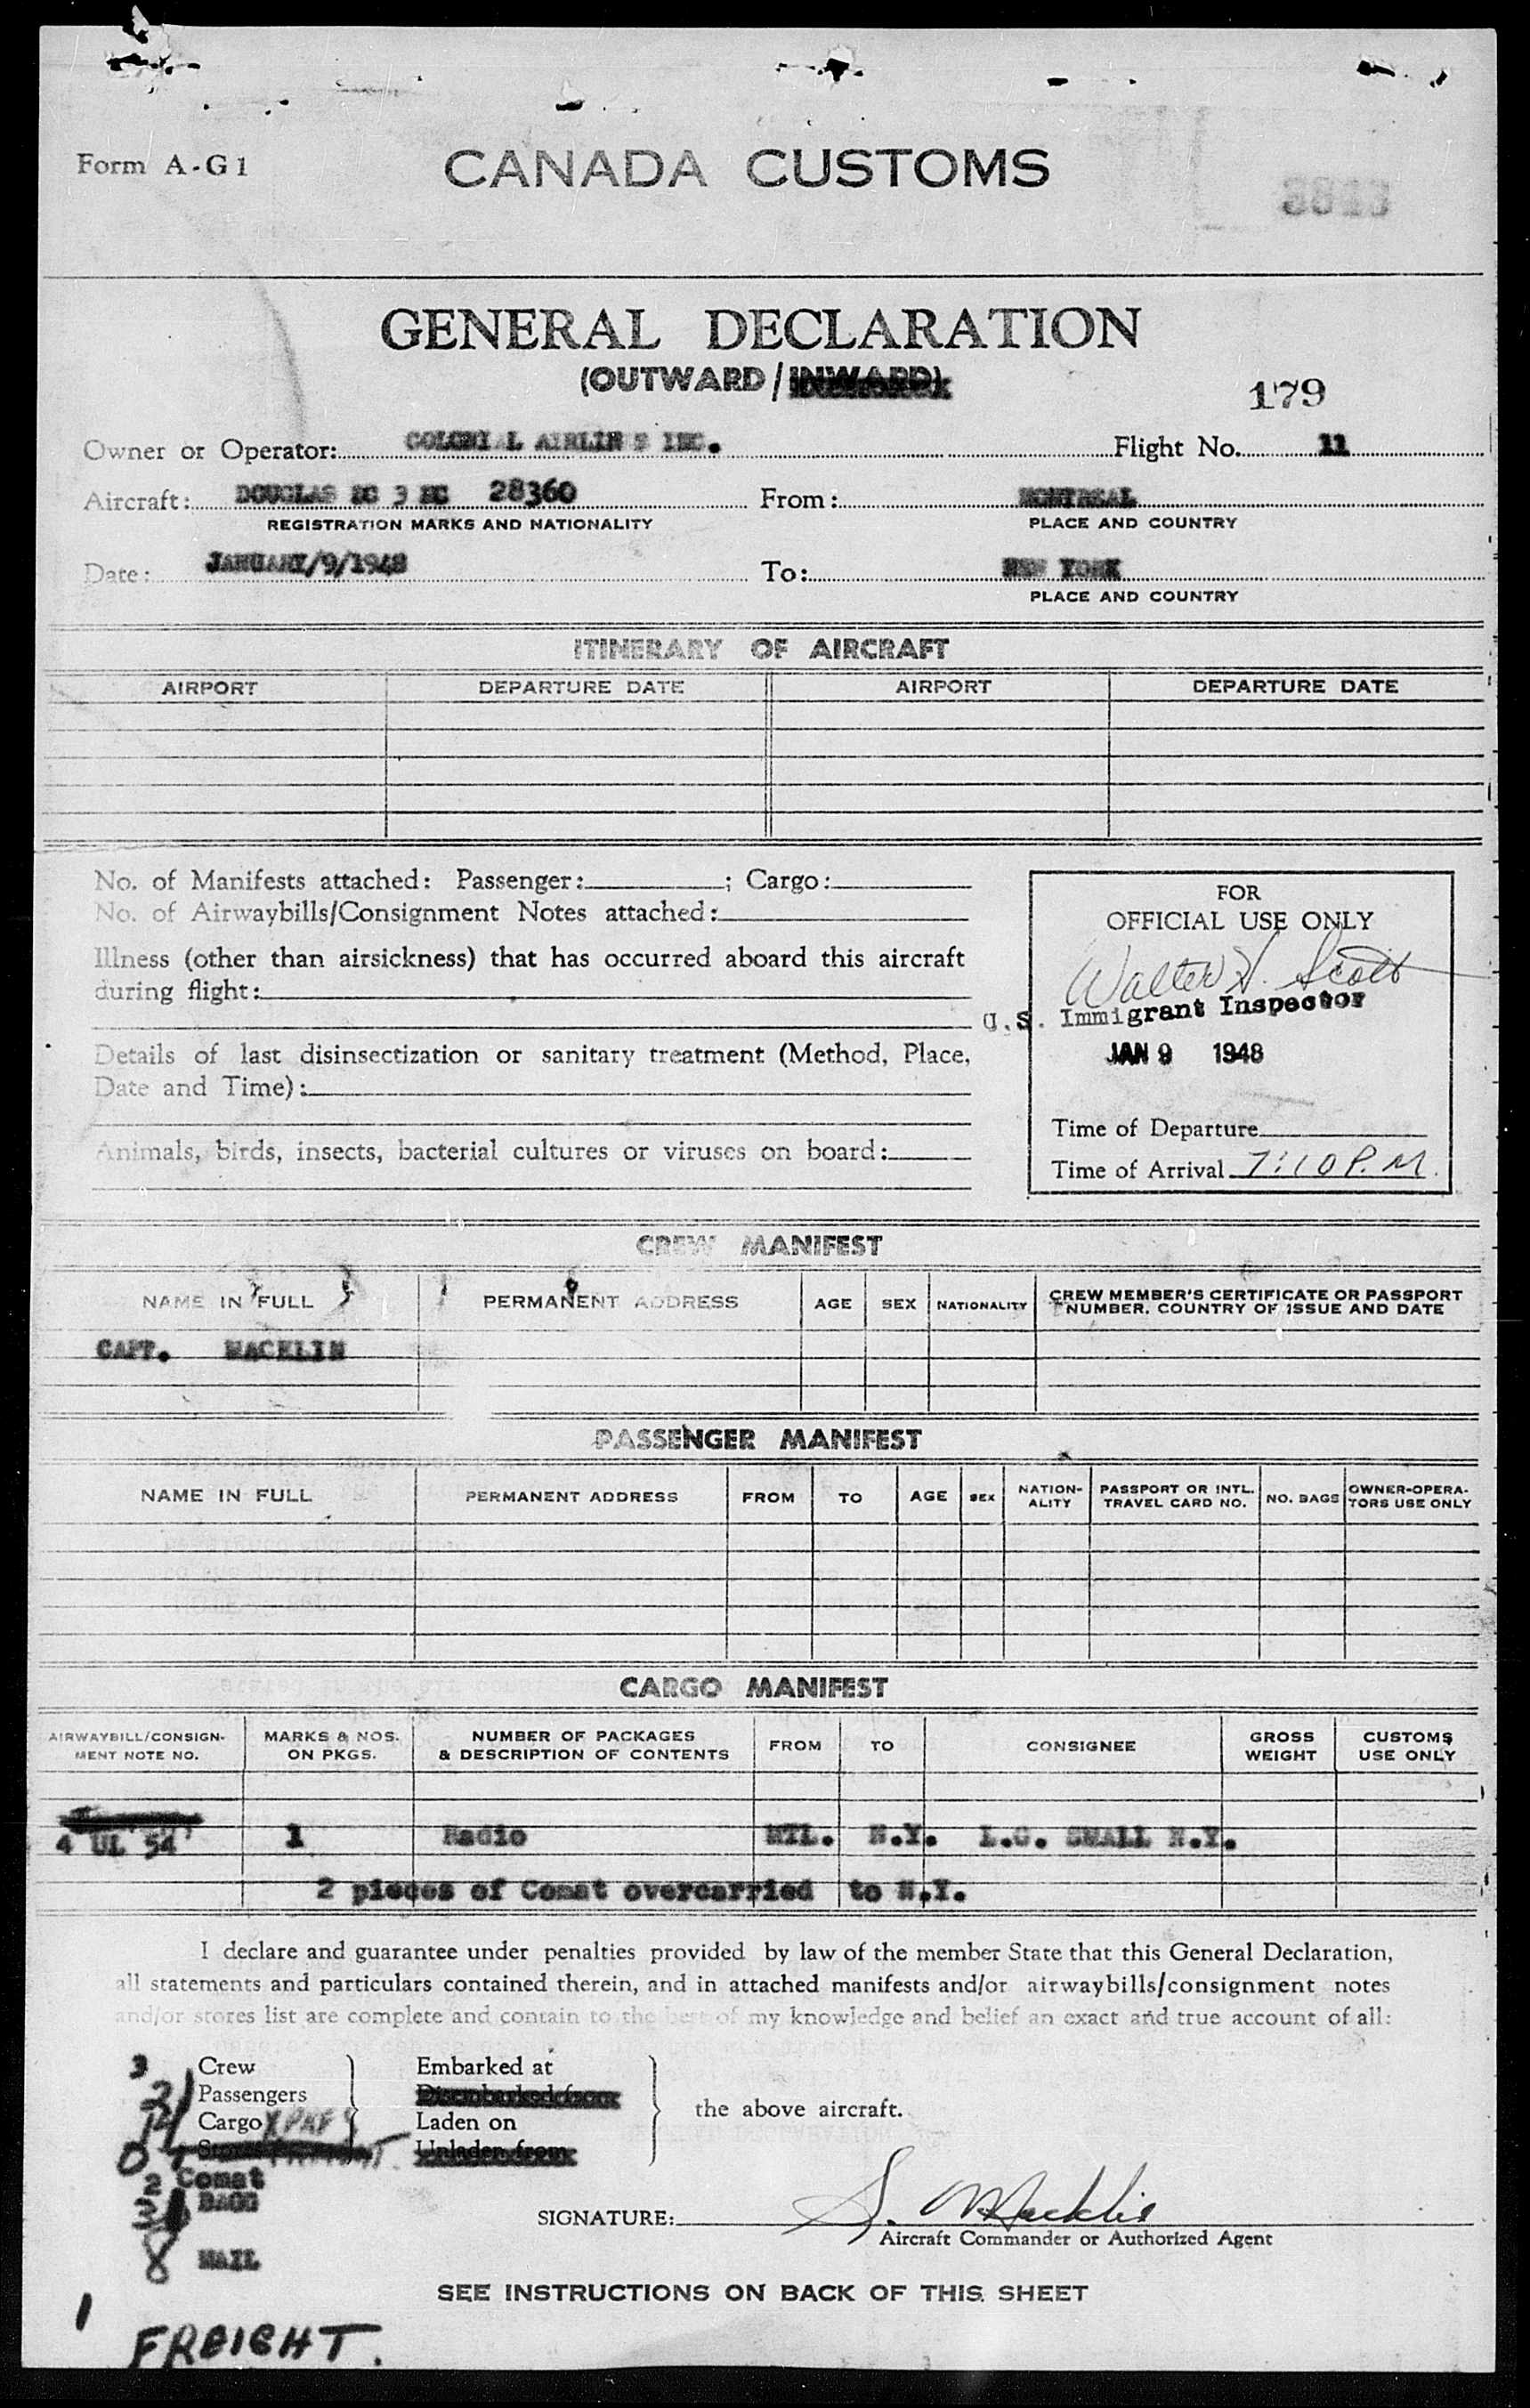 Form A-G1
CANADA CUSTOMS
GENERAL DECLARATION
(OUTWARD/INWARD)
179
Owner or Operator: COLONIAL AIRLINES INC. Flight No. 11
Aircraft: DOUGLAS DC 3 NC 28360 From: MONTREAL
REGISTRATION MARKS AND NATIONALITY PLACE AND COUNTRY
Date: JANUARY/9/1948 To: NEW YORK
PLACE AND COUNTRY
ITINERARY OF AIRCRAFT
AIRPORT DEPARTURE DATE AIRPORT DEPARTURE DATE
No. of Manifests attached: Passenger: ; Cargo:
No. of Airwaybills/Consignment Notes attached:
Illness (other than airsickness) that has occurred aboard this aircraft
during flight:
Details of last disinsectization or sanitary treatment (Method, Place,
Date and Time):
Animals, birds, insects, bacterial cultures or viruses on board:
FOR
OFFICIAL USE ONLY
Walter H. Scott
U.S. Immigrant Inspector
JAN 9 1948
Time of Departure
Time of Arrival 7:10 P.M.
CREW MANIFEST
NAME IN FULL PERMANENT ADDRESS AGE SEX NATIONALITY CREW MEMBER'S CERTIFICATE OR PASSPORT
NUMBER, COUNTRY OF ISSUE AND DATE
CAPT. MACKLIN
PASSENGER MANIFEST
NAME IN FULL PERMANENT ADDRESS FROM TO AGE SEX NATION-
ALITY PASSPORT OR INTL.
TRAVEL CARD NO. NO. BAGS OWNER-OPERA-
TORS USE ONLY
CARGO MANIFEST
AIRWAYBILL/CONSIGN-
MENT NOTE NO. MARKS & NOS.
ON PKGS. NUMBER OF PACKAGES
& DESCRIPTION OF CONTENTS FROM TO CONSIGNEE GROSS
WEIGHT CUSTOMS
USE ONLY
4 UL 54 1 Radio MTL. N.Y. L.G. SMALL N.Y.
2 pieces of Comat overcarried to N.Y.
I declare and guarantee under penalties provided by law of the member State that this General Declaration,
all statements and particulars contained therein, and in attached manifests and/or airwaybills/consignment notes
and/or stores list are complete and contain to the best of my knowledge and belief an exact and true account of all:
3 Crew Embarked at
21 Passengers Disembarked from
Cargo Laden on
Stores Unladen from
the above aircraft.
2 Comat
BAGG
8 MAIL
SIGNATURE: S. Macklin
Aircraft Commander or Authorized Agent
SEE INSTRUCTIONS ON BACK OF THIS SHEET
1 FREIGHT.